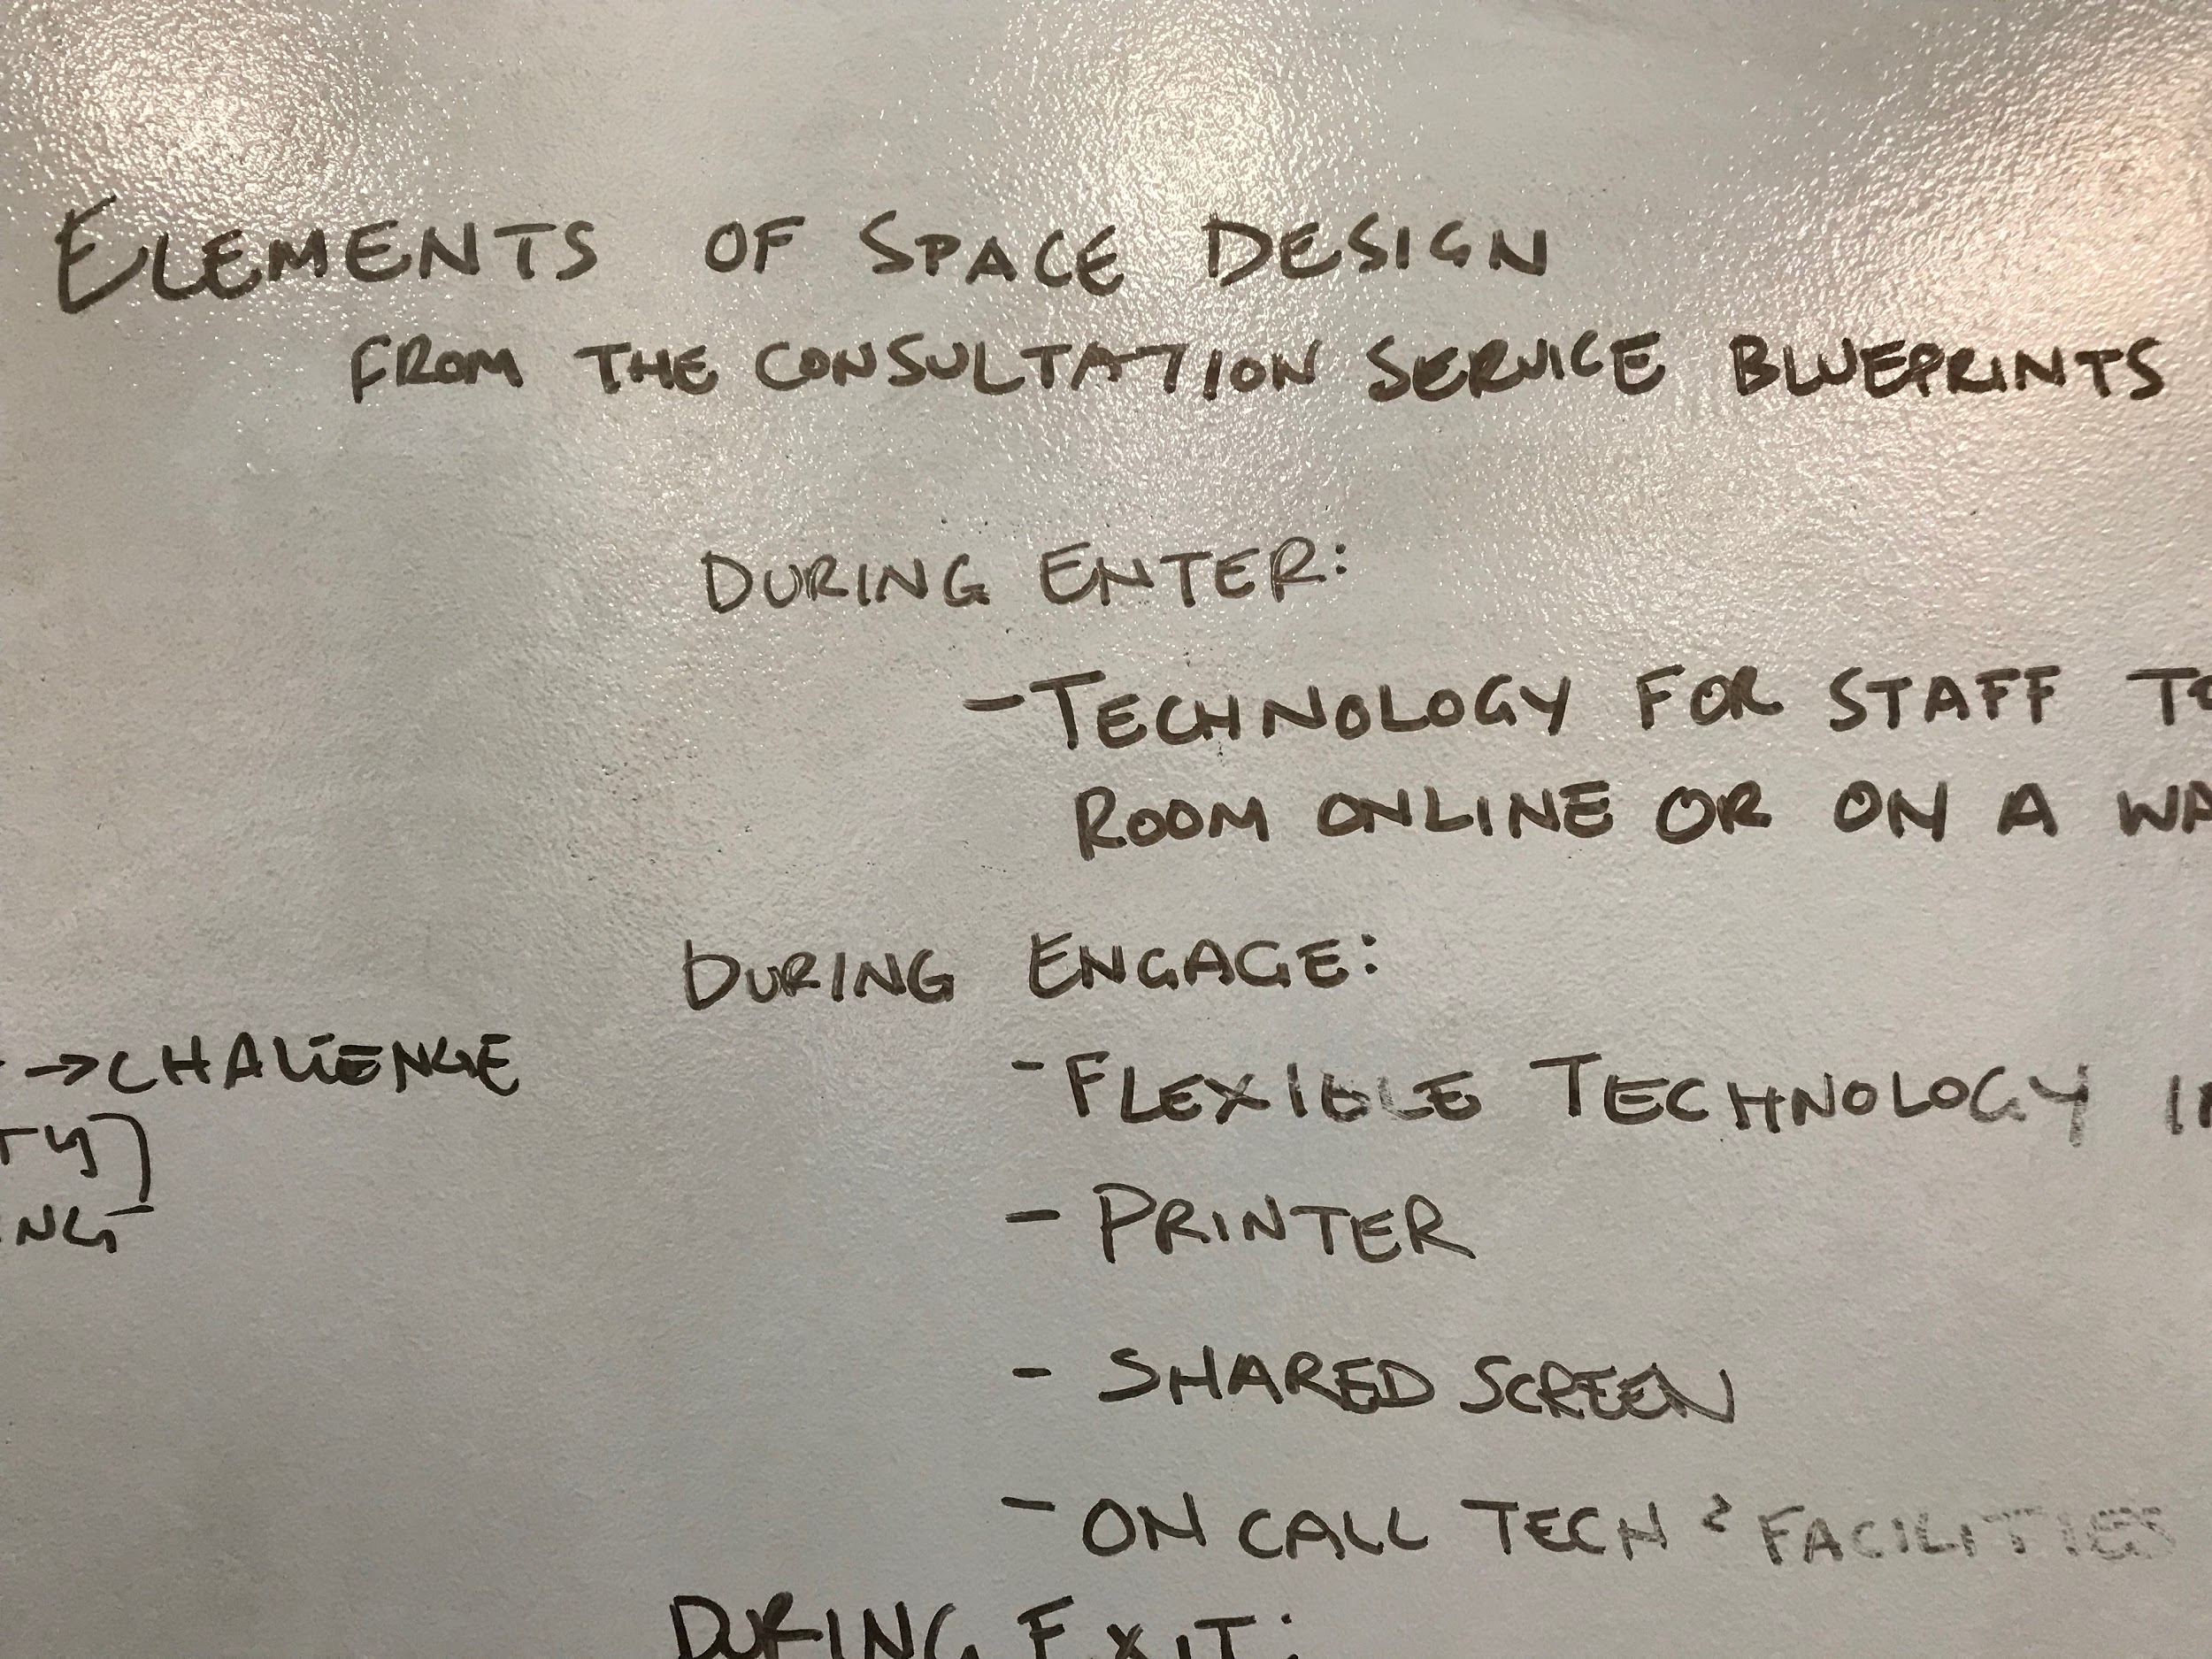 ELEMENTS OF SPACE DESIGN
FROM THE CONSULTATION SERVICE BLUEPRINTS
DURING ENTER:
- TECHNOLOGY FOR STAFF TO
ROOM ONLINE OR ON A WA
DURING ENGAGE:
→ CHALLENGE
- FLEXIBLE TECHNOLOGY IN
TY]
- PRINTER
ING
- SHARED SCREEN
- ON CALL TECH & FACILITIES
DURING EXIT: